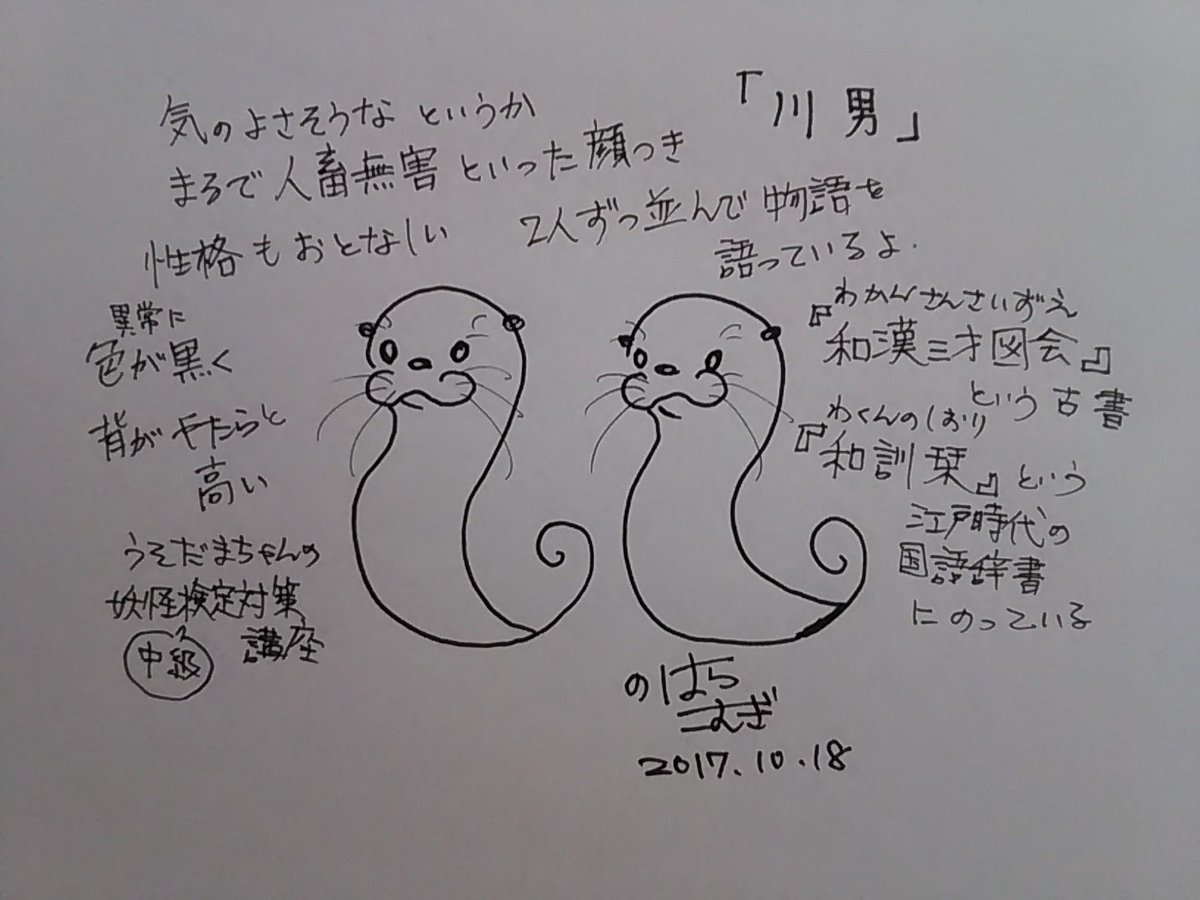 「川男」
気のよさそうな というか
まるで人畜無害といった顔つき
性格もおとなしい
2人ずつ並んで物語を
語っているよ.
異常に
色が黒く
背がやたらと
高い
わかんさんさいずえ
『和漢三才図会』
という古書
わくんのしおり
『和訓栞』という
江戸時代の
国語辞書
にのっている
うそだまちゃんの
妖怪検定対策
中級 講座
のはら
こむぎ
2017.10.18